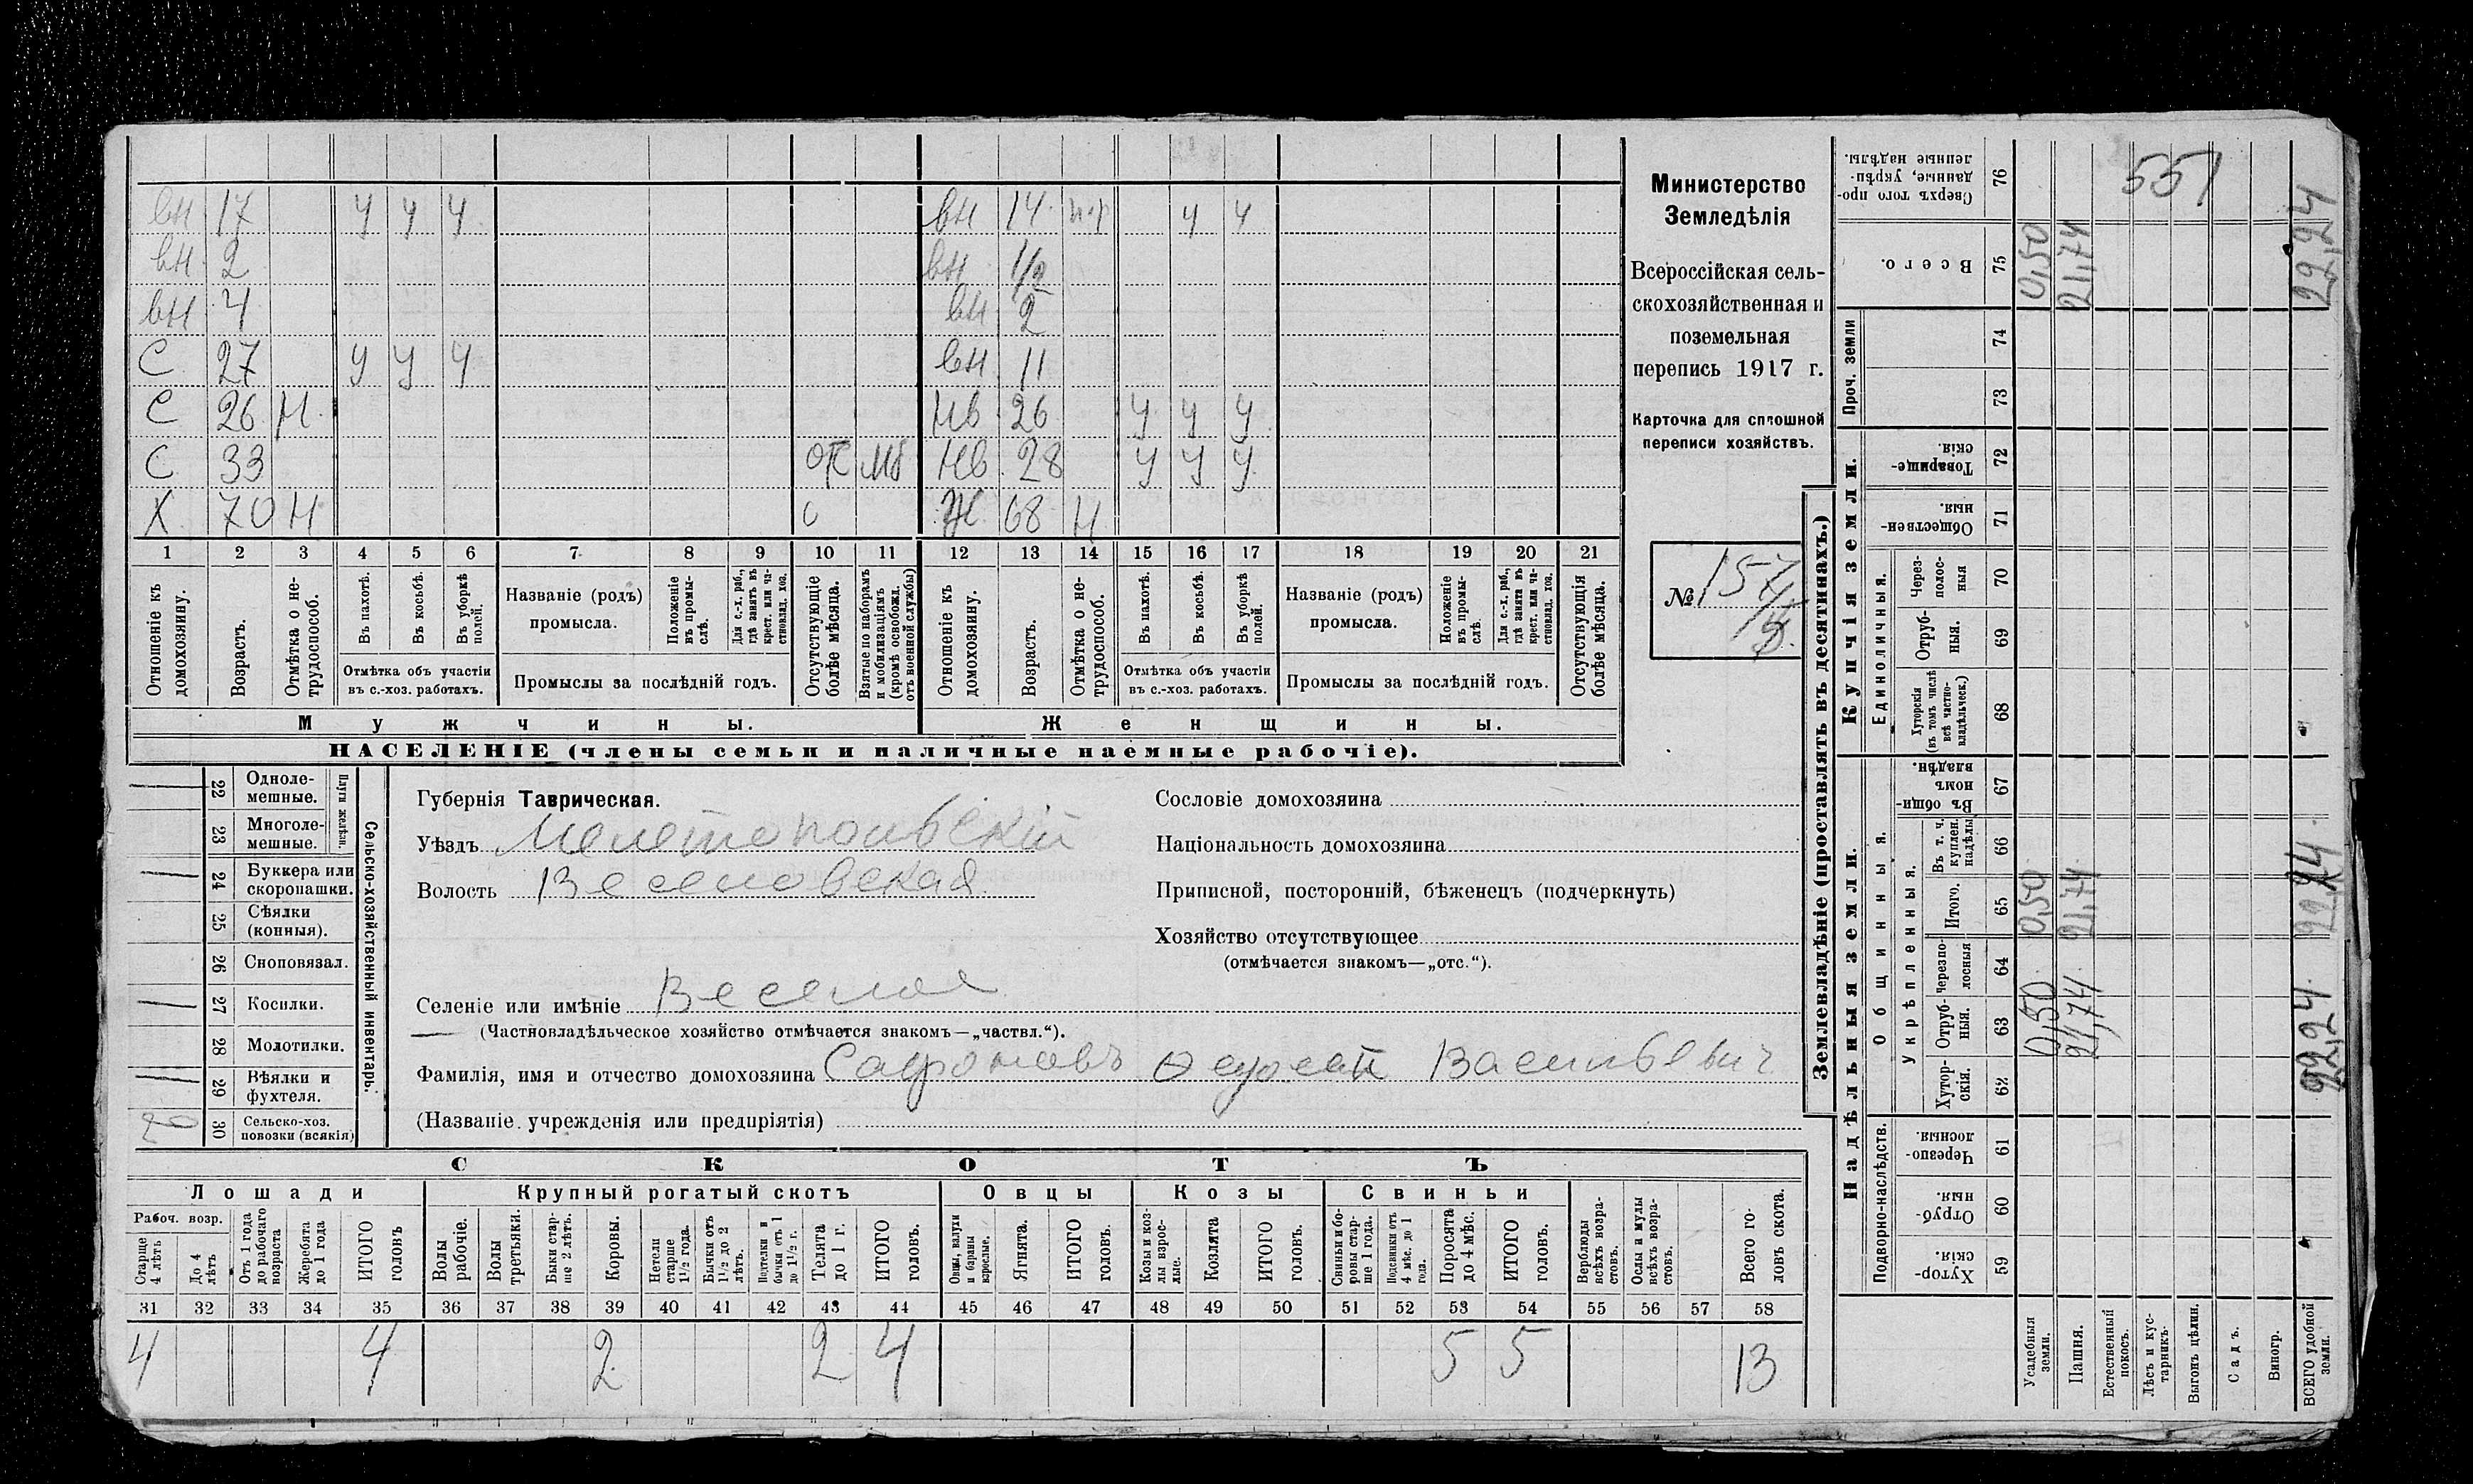 вн 17 у у у вн 14 н.р у у
вн 2 вн 1/2
вн 4 вн 2
С 27 у у у вн 11
С 26 Н нв 26 у у у
С 33 от мб нв 28 у у у
Х 70 Н о Ж 68 Н
1 2 3 4 5 6 7 8 9 10 11 12 13 14 15 16 17 18 19 20 21
Отношеніе къ домохозяину.
Возрастъ.
Отмѣтка о не-трудоспособ.
Въ пахотѣ.
Въ косьбѣ.
Въ уборкѣ полей.
Отмѣтка объ участіи
въ с.-хоз. работахъ.
Названіе (родъ)
промысла.
Положеніе въ промы-слѣ.
Для с.-х. раб., гдѣ занятъ въ крест. или ча-стновлад. хоз.
Промыслы за послѣдній годъ.
Отсутствующіе болѣе мѣсяца.
Взятые по наборамъ и мобилизаціямъ (кромѣ освобожд. отъ военной службы)
Отношеніе къ домохозяину.
Возрастъ.
Отмѣтка о не-трудоспособ.
Въ пахотѣ.
Въ косьбѣ.
Въ уборкѣ полей.
Отмѣтка объ участіи
въ с.-хоз. работахъ.
Названіе (родъ)
промысла.
Положеніе въ промы-слѣ.
Для с.-х. раб., гдѣ занята въ крест. или ча-стновлад. хоз.
Промыслы за послѣдній годъ.
Отсутствующія болѣе мѣсяца.
Мужчины. Женщины.
НАСЕЛЕНІЕ (члены семьи и наличные наемные рабочіе).
Министерство
Земледѣлія
Всероссійская сель-
скохозяйственная и
поземельная
перепись 1917 г.
Карточка для сплошной
переписи хозяйствъ.
№ 157
22 Одноле-мешные.
23 Многоле-мешные.
Плуги желѣзн.
24 Буккера или скоропашки.
25 Сѣялки (конныя).
26 Сноповязал.
27 Косилки.
28 Молотилки.
29 Вѣялки и фухтеля.
30 Сельско-хоз. повозки (всякія)
Сельско-хозяйственный инвентарь.
Губернія Таврическая.
Уѣздъ Мелетопольскій
Волость Веселовская
Селеніе или имѣніе Веселое
(Частновладѣльческое хозяйство отмѣчается знакомъ—„частвл.“).
Фамилія, имя и отчество домохозяина Сафроновъ Федосей Васильевич
(Названіе учрежденія или предпріятія)
Сословіе домохозяина
Національность домохозяина
Приписной, посторонній, бѣженецъ (подчеркнуть)
Хозяйство отсутствующее
(отмѣчается знакомъ—„отс.“).
СКОТЪ
Лошади Крупный рогатый скотъ Овцы Козы Свиньи
Рабоч. возр.
Старше 4 лѣтъ
До 4 лѣтъ
Отъ 1 года до рабочаго возраста
Жеребята до 1 года
ИТОГО головъ
Волы рабочіе.
Волы третьяки.
Быки стар-ше 2 лѣтъ.
Коровы.
Нетели старше 1½ года.
Бычки отъ 1½ до 2 лѣтъ.
Подтелки и бычки отъ 1 до 1½ г.
Телята до 1 г.
ИТОГО головъ.
Овцы, валухи и бараны взрослые.
Ягнята.
ИТОГО головъ.
Козы и коз-лы взрос-лые.
Козлята
ИТОГО головъ.
Свиньи и бо-ровы стар-ше 1 года.
Подсвинки отъ 4 мѣс. до 1 года.
Поросята до 4 мѣс.
ИТОГО головъ.
Верблюды всѣхъ возра-стовъ.
Ослы и мулы всѣхъ возра-стовъ.
Всего го-ловъ скота.
31 32 33 34 35 36 37 38 39 40 41 42 43 44 45 46 47 48 49 50 51 52 53 54 55 56 57 58
4 4 2 2 4 5 5 13
Землевладѣніе (проставлять въ десятинахъ.)
Надѣльныя земли. Купчія земли. Проч. земли
Подворно-наслѣдств.
Общинныя.
Укрѣпленныя.
Единоличныя.
Хутор-скія. 59
Отруб-ныя. 60
Черезпо-лосныя 61
Хутор-скія. 62
Отруб-ныя. 63
Черезпо-лосныя 64
Итого. 65
Въ т. ч. куплен. надѣлы 66
Въ общи-номъ владѣн. 67
Хуторскія (въ томъ числѣ всѣ частно-владѣльческ.) 68
Отруб-ныя. 69
Через-полос-ныя 70
Обществен-ныя. 71
Товарище-скія. 72
73
74
Всего. 75
Сверхъ того про-данные, укрѣп-ленные надѣлы. 76
551
Усадебныя земли. 0,50 0,50 0,50
Пашня. 21,74 21,74 21,74
Естественный покосъ.
Лѣсъ и кус-тарникъ.
Выгонъ цѣлин.
Садъ.
Виногр.
ВСЕГО удобной земли. 22,24 22,24 22,24